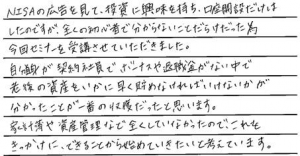 NISAの広告を見て、投資に興味を持ち、口座開設だけは
したのですが、全くの初心者で分からないことだらけだった為
今回セミナーを受講させていただきました。
自分が契約社員でボーナスや退職金がない中で
老後の資産をいかに早く貯めなければいけないかが
分かったことが一番の収穫だったと思います。
家計簿や資産管理など全くしていなかったのでこれを
きっかけに、できることから始めていきたいと考えています。